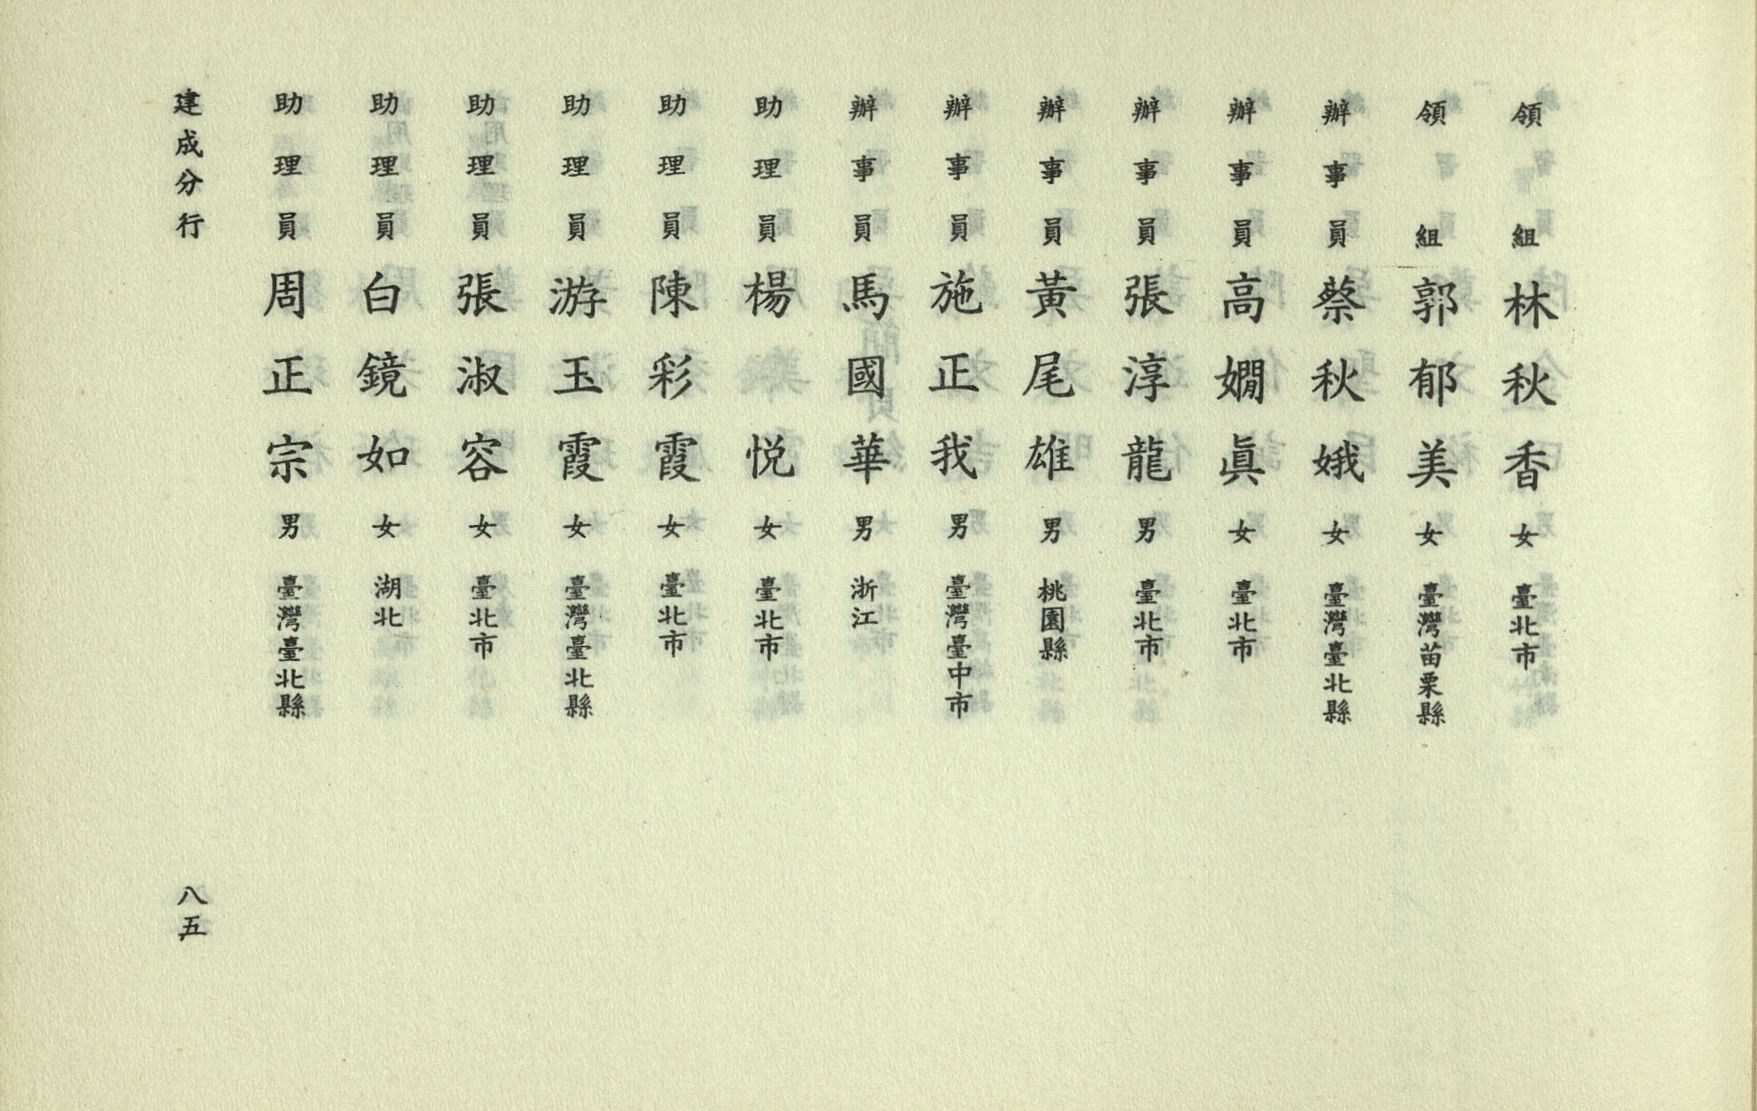 領組林秋香女臺北市
領組郭郁美女臺灣苗栗縣
辦事員蔡秋娥女臺灣臺北縣
辦事員高嫺眞女臺北市
辦事員張淳龍男臺北市
辦事員黃尾雄男桃園縣
辦事員施正我男臺灣臺中市
辦事員馬國華男浙江
助理員楊悅女臺北市
助理員陳彩霞女臺北市
助理員游玉霞女臺灣臺北縣
助理員張淑容女臺北市
助理員白鏡如女湖北
助理員周正宗男臺灣臺北縣
建成分行
八五